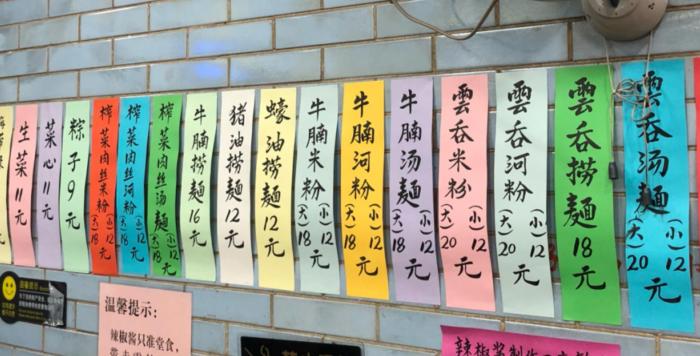 生菜11元
菜心11元
粽子9元
榨菜肉丝米粉(大)18(小)12元
榨菜肉丝河粉(大)18(小)12元
榨菜肉丝汤麵(大)18(小)12元
牛腩捞麵16元
猪油捞麵12元
蠔油捞麵12元
牛腩米粉(大)18(小)12元
牛腩河粉(大)18(小)12元
牛腩汤麵(大)18(小)12元
雲吞米粉(大)20(小)12元
雲吞河粉(大)20(小)12元
雲吞捞麵18元
雲吞汤麵(大)20(小)12元
温馨提示:
辣椒酱只准堂食,